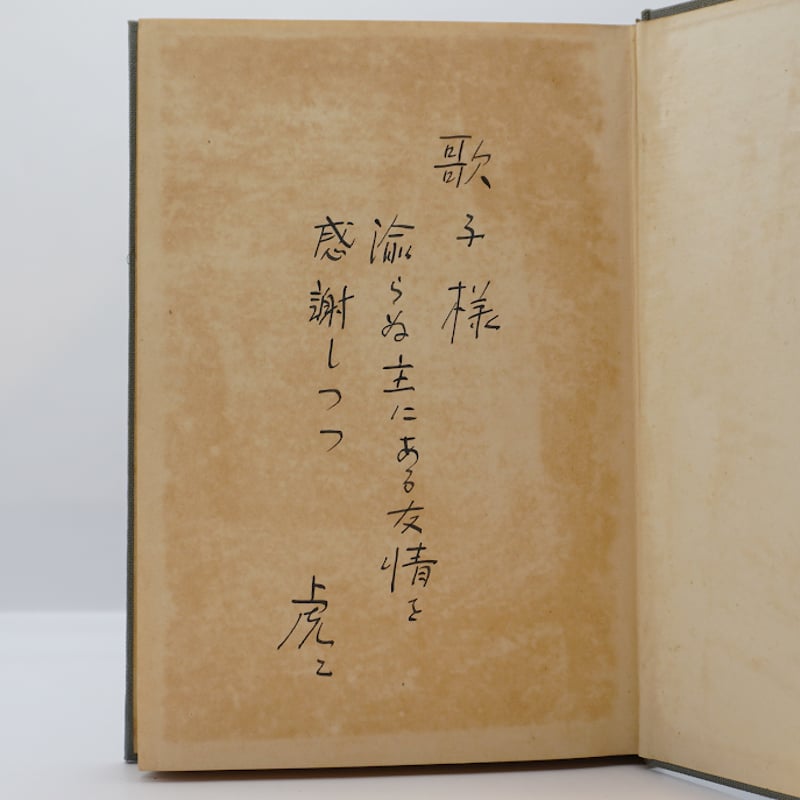 歌子様
渝らぬ主にある友情を
感謝しつつ
虎二